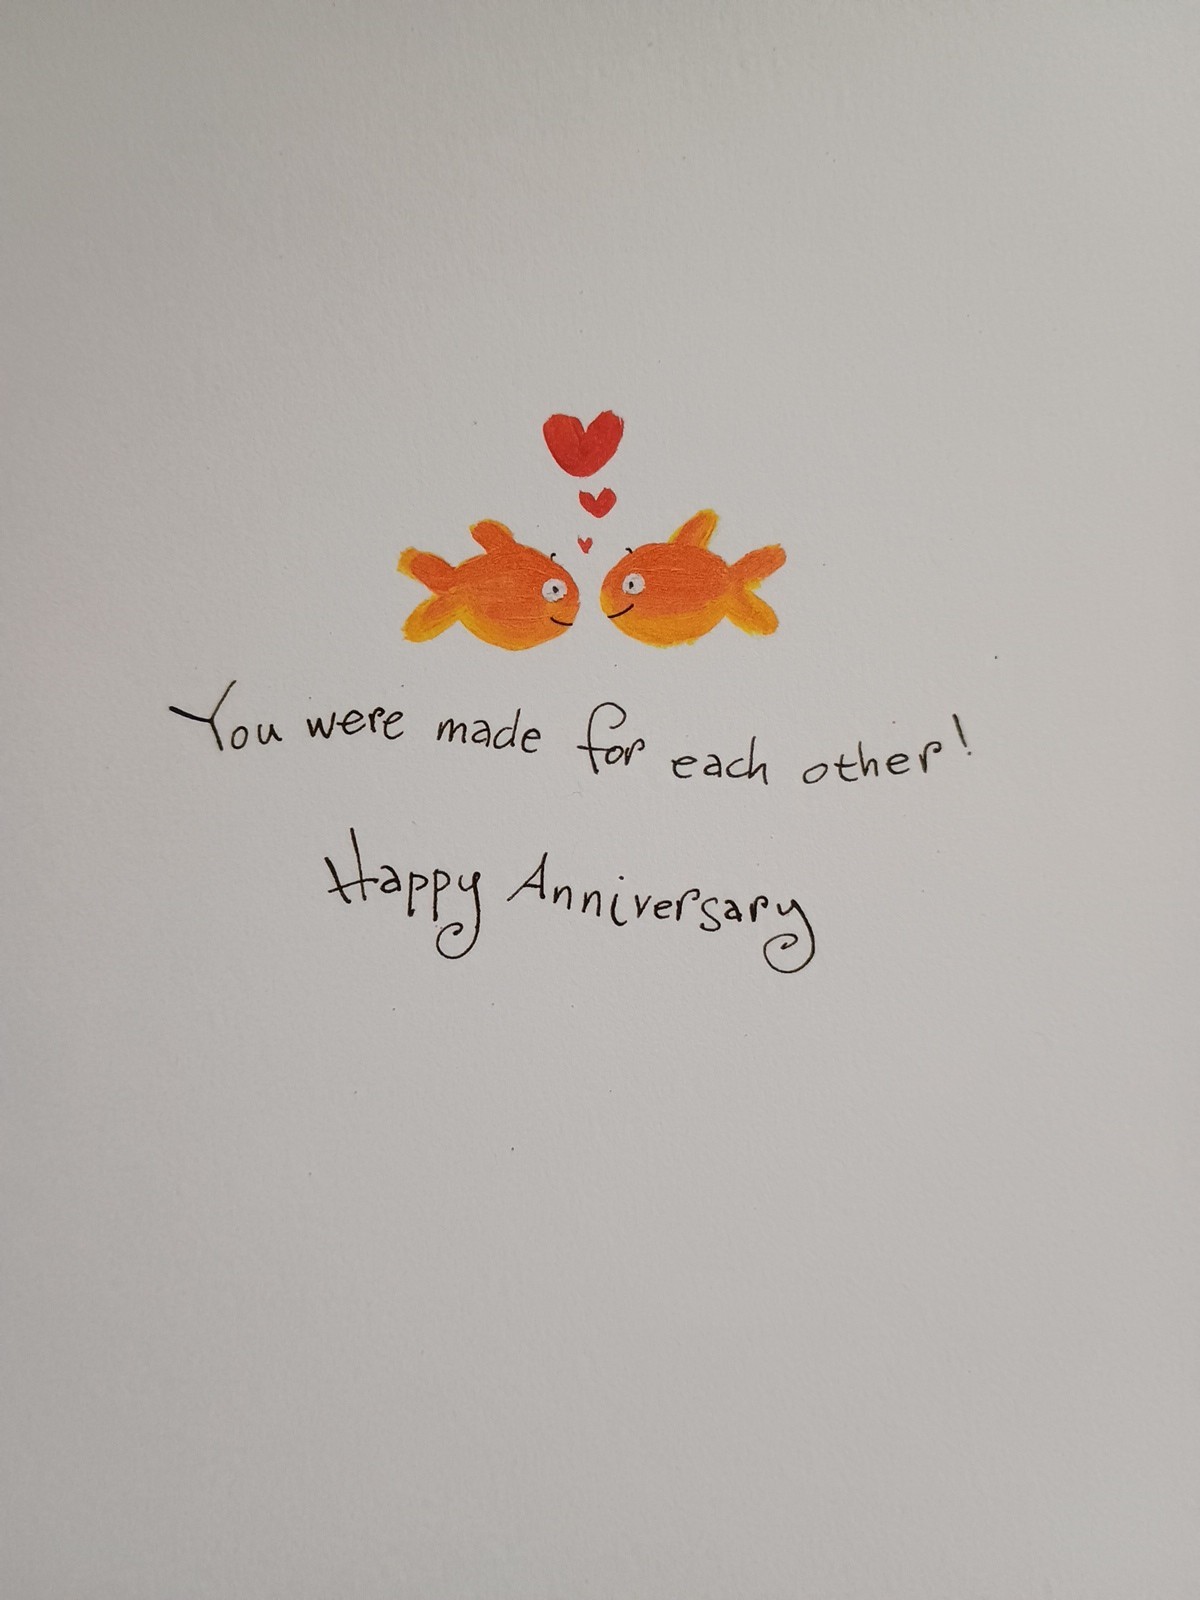 You were made for each other!
Happy Anniversary